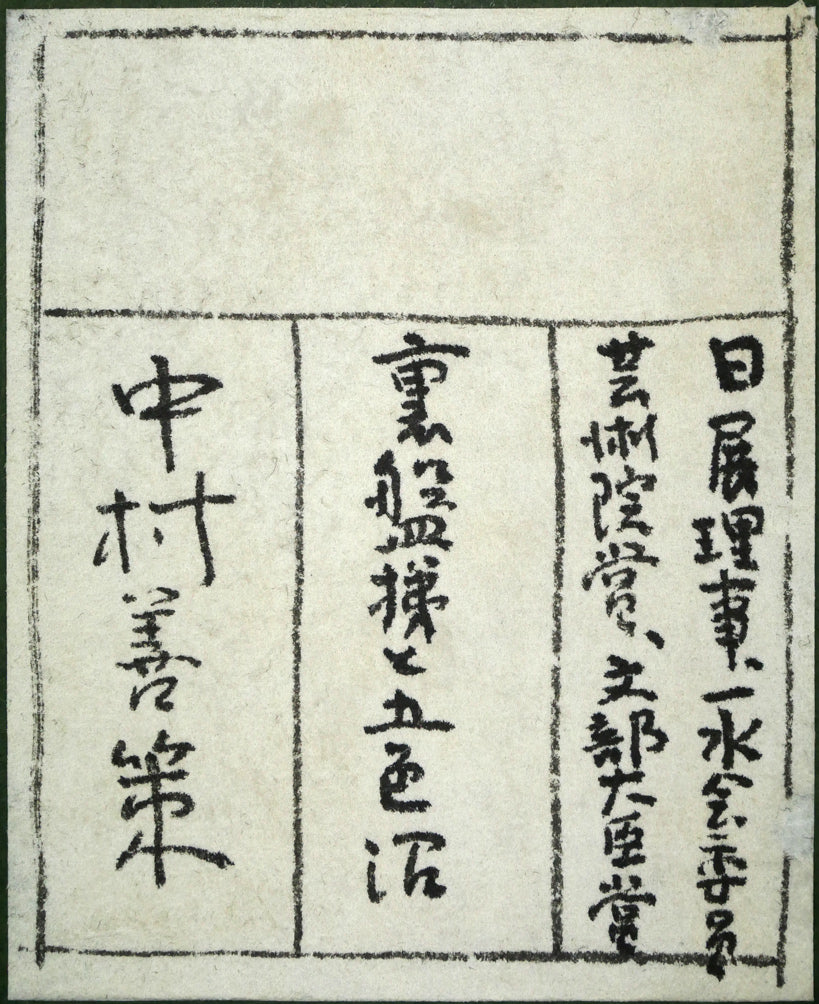 日展理事、一水会委員
芸術院賞、文部大臣賞
裏磐梯と五色沼
中村善策